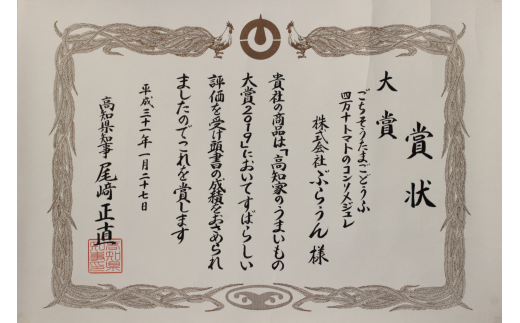 賞状
大賞
ごちそうたまごどうふ
四万十トマトのコンソメジュレ
株式会社ぶらうん様
貴社の商品は「高知家のうまいもの
大賞2019」においてすばらしい
評価を受け頭書の成績をおさめられ
ましたのでこれを賞します
平成三十一年一月二十七日
高知県知事 尾﨑正直
高知県
知事印